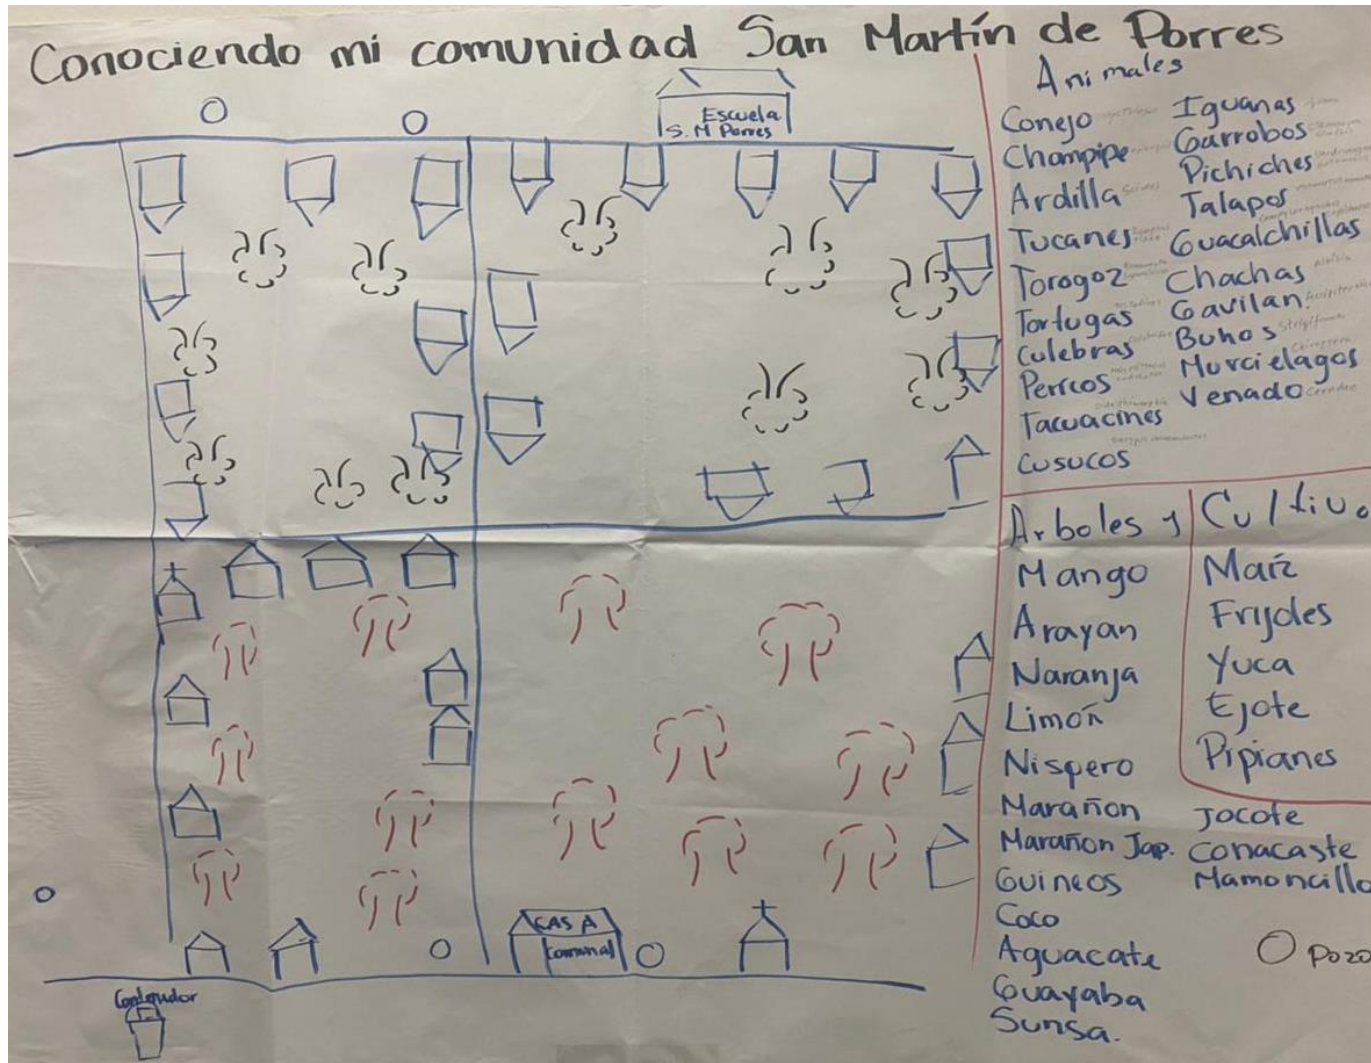 Conociendo mi comunidad San Martín de Porres
Escuela
S. M Porres
CASA
Comunal
Contenedor
Animales
Conejo
Champipe
Ardilla
Tucanes
Torogoz
Tortugas
Culebras
Pericos
Tacuacines
Cusucos
Iguanas
Garrobos
Pichiches
Talapos
Guacalchillas
Chachas
Gavilan
Buhos
Murcielagos
Venado
Arboles y
Mango
Arayan
Naranja
Limón
Nispero
Marañon
Marañon Jap.
Guineos
Coco
Aguacate
Guayaba
Sunsa.
Cultivo
Maíz
Frijoles
Yuca
Ejote
Pipianes
Jocote
Conacaste
Mamoncillo
Pozo